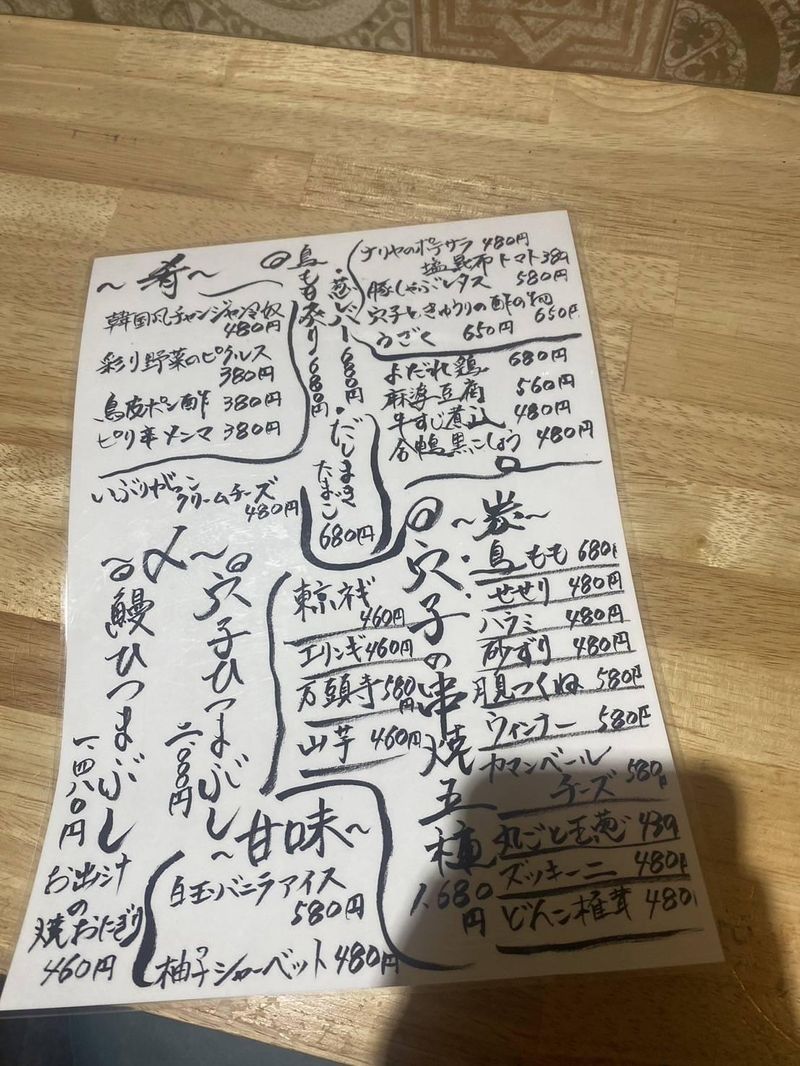 〜肴〜
韓国風チャンジャ冷奴
480円
彩り野菜のピクルス
380円
鳥皮ポン酢 380円
ピリ辛メンマ 380円
いぶりがっこ
クリームチーズ
480円
◎鳥もも炙り 680円
・葱レバー 680円
・だしまき
たまご
680円
ナリヤのポテサラ 480円
塩昆布トマト 380
豚しゃぶレタス 580円
穴子ときゅうりの酢の物 650円
うざく 650円
よだれ鶏 680円
麻婆豆腐 560円
牛すじ煮込 480円
合鴨黒こしょう 480円
〜炭〜
鳥もも 680円
せせり 480円
ハラミ 480円
砂ずり 480円
月見つくね 580円
ウィンナー 580円
カマンベール
チーズ 580円
丸ごと玉葱 480
ズッキーニ 480円
どんこ椎茸 480
◎穴子の串焼五種
1,680
円
東京ネギ
460円
エリンギ 460円
万願寺 580円
山芋 460円
〜〆〜
◎穴子ひつまぶし
二.〇八〇円
◎鰻ひつまぶし
一.四八〇円
お出汁
の
焼おにぎり
460円
〜甘味〜
白玉バニラアイス
580円
柚子シャーベット 480円